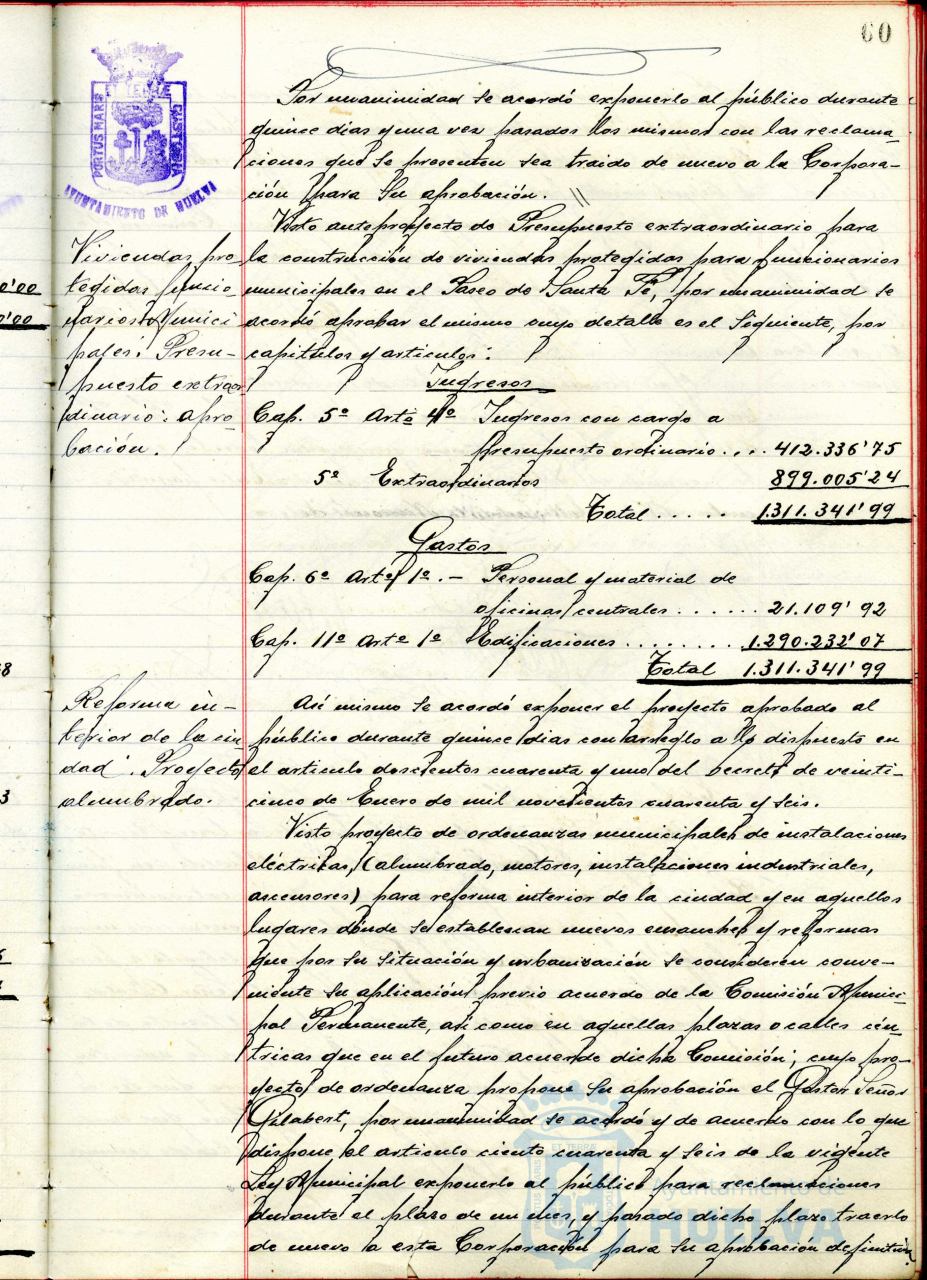 60
PORTUS MARIS ET TERRAE CUSTODIA
AYUNTAMIENTO DE HUELVA
Por unanimidad se acordó exponerlo al público durante
quince días y una vez pasados los mismos con las reclama-
ciones que se presenten sea traido de nuevo a la Corpora-
ción para su aprobación. //
Viviendas pro-
tegidas funcio-
narios Munici
pales: Presu-
puesto extraor
dinario: apro-
bación.
Visto anteproyecto de Presupuesto extraordinario para
la construcción de viviendas protegidas para funcionarios
municipales en el Paseo de Santa Fé, por unanimidad se
acordó aprobar el mismo cuyo detalle es el siguiente, por
capitulos y articulos:
Ingresos
Cap. 5º Artº 4º Ingresos con cargo a
presupuesto ordinario .... 412.336'75
5º Extraordinarios 899.005'24
Total ..... 1.311.341'99
Gastos
Cap. 6º Artº 1º.- Personal y material de
oficinas centrales ....... 21.109'92
Cap. 11º Artº 1º Edificaciones ......... 1.290.232'07
Total 1.311.341'99
Reforma in-
terior de la ciu
dad: Proyecto
alumbrado.
Así mismo se acordó exponer el proyecto aprobado al
público durante quince dias con arreglo a lo dispuesto en
el articulo doscientos cuarenta y uno del Decreto de veinti-
cinco de Enero de mil novecientos cuarenta y seis.
Visto proyecto de ordenanzas municipales de instalaciones
eléctricas, (alumbrado, motores, instalaciones industriales,
ascensores) para reforma interior de la ciudad y en aquellos
lugares dónde se establezcan nuevos ensanches y reformas
que por su situación y urbanización se consideren conve-
niente su aplicación previo acuerdo de la Comisión Munici-
pal Permanente, así como en aquellas plazas o calles cén-
tricas que en el futuro acuerde dicha Comisión; cuyo pro-
yecto de ordenanza propone su aprobación el Gestor Señor
Gilabert, por unanimidad se acordó y de acuerdo con lo que
dispone el articulo ciento cuarenta y seis de la vigente
Ley Municipal exponerlo al público para reclamaciones
durante el plazo de un mes, y pasado dicho plazo traerlo
de nuevo a esta Corporación para su aprobación definitiva.
Ayuntamiento de
HUELVA